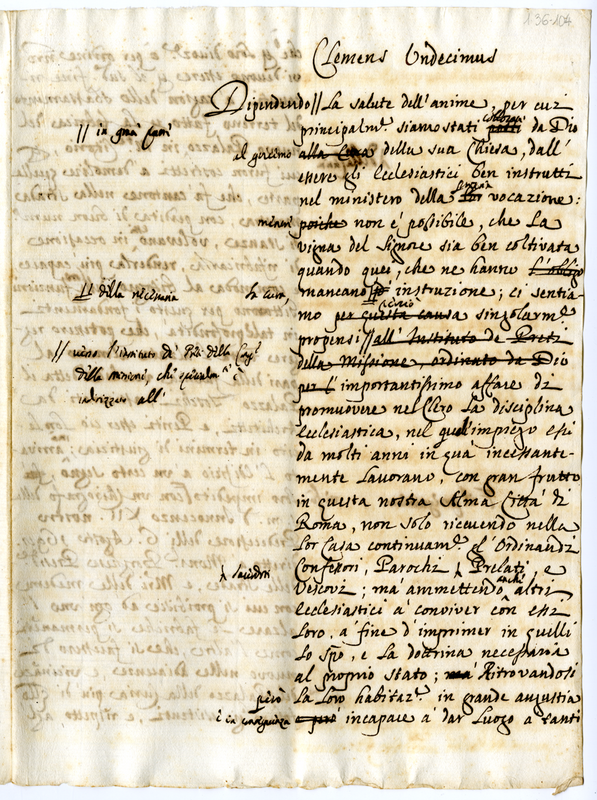 136-104
Clemens Undecimus
Dipendendo // La salute dell'anime, per cui
// in gran
principalm.e siamo stati posti da Dio
collocati
al governo
alla Cura della sua Chiesa, dall'
essere gli Ecclesiastici ben instrutti
nel ministero della Lor vocazione:
poiche non é possibile, che La
vigna del Signore sia ben coltivata
quando quei, che ne hanno L'obligo
la cura,
// della necessaria
mancano instruzione; ci sentia-
mo per questa causa singolarm.e
propensi // all'Instituto de Preti
della Missione, ordinato da Dio
// verso l'instituto de' Preti della Cong.e
della missione, che
indrizzato all'
per l'importantissimo affare di
promuovere nel Clero La disciplina
Ecclesiastica, nel quall'impiego essi
da molti anni in quà incessante-
mente Lavorano, con gran frutto
in questa nostra Alma Città di
Roma, non solo ricevendo nella
Lor Casa continuam.e Ordinandi
Confessori, Parochi, Prelati, e
Sacerdoti
Vescovi; mà ammettendo anche altri
Ecclesiastici à conviver con essi
Loro, à fine d'imprimer in quelli
Lo Spo, e La dottrina necessaria
al proprio stato; mà Ritrovandosi
però
La Loro habitaz.e in grande angustia
è in conseguenza
e però incapace à dar Luogo a tanti